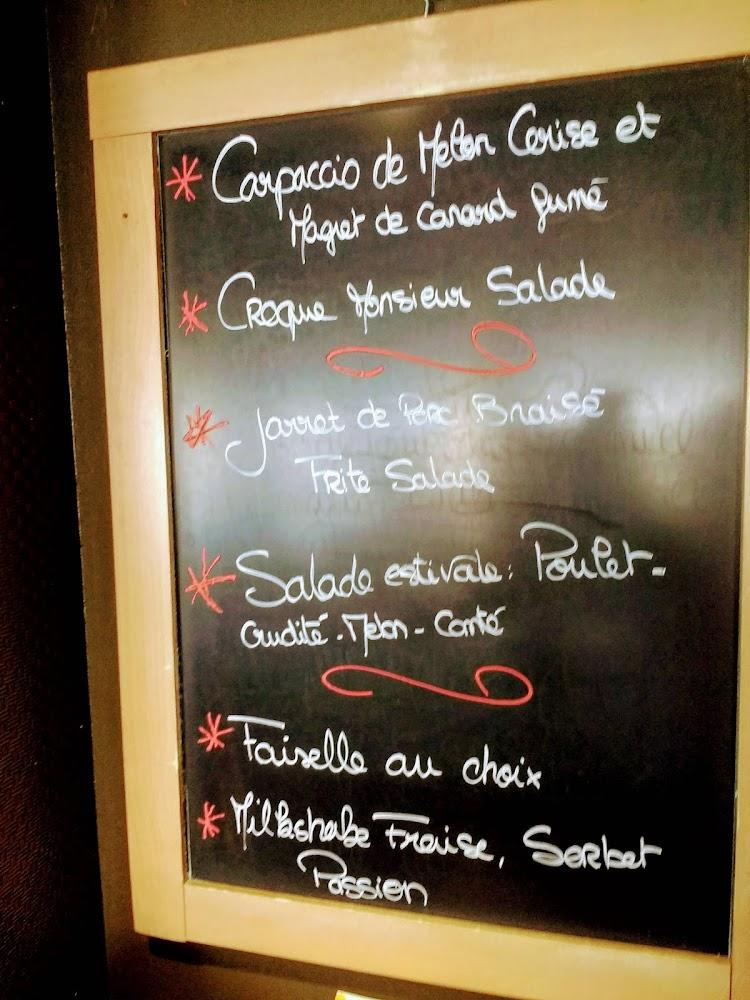 Carpaccio de Melon Cerise et
Magret de Canard fumé
Croque Monsieur Salade
Jarret de Porc Braisé
Frite Salade
Salade estivale: Poulet-
Crudité-Melon-Comté
Faiselle au choix
Milkshake Fraise, Sorbet
Passion